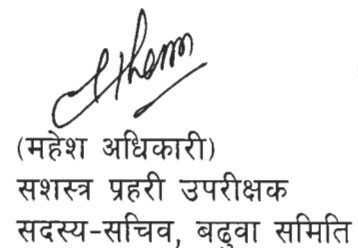 (महेश अधिकारी)
सशस्त्र प्रहरी उपरीक्षक
सदस्य-सचिव, बढुवा समिति